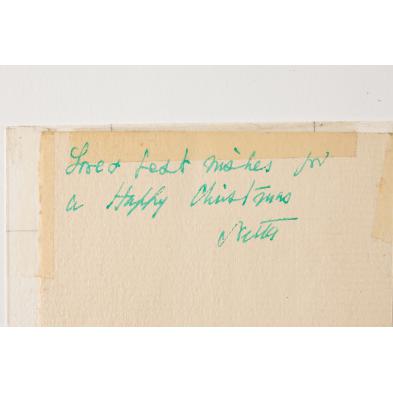 Love & best wishes for
a Happy Christmas
Netta